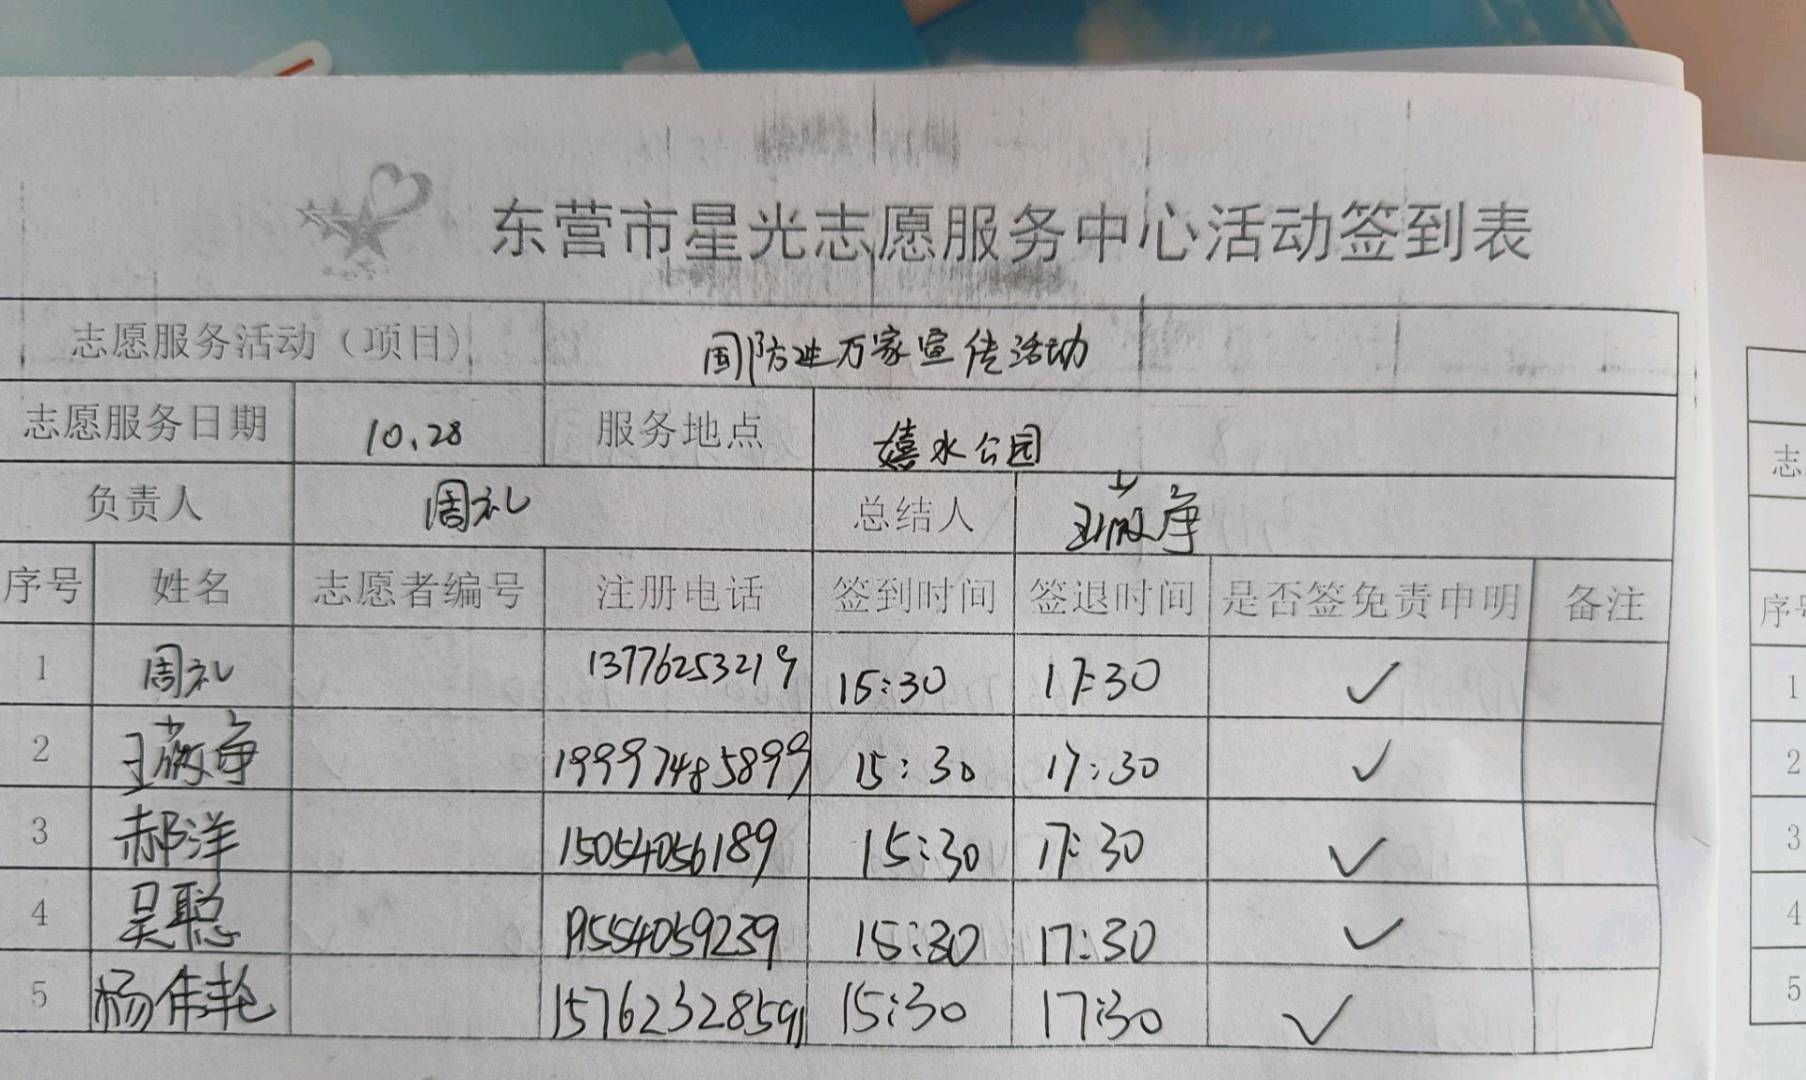 东营市星光志愿服务中心活动签到表
志愿服务活动（项目） 国防进万家宣传活动
志愿服务日期 10.28 服务地点 嬉水公园
负责人 周礼 总结人 王薇
序号 姓名 志愿者编号 注册电话 签到时间 签退时间 是否签免责申明 备注
1 周礼 13776253219 15:30 17:30 ✓
2 王薇 19997485899 15:30 17:30 ✓
3 郝洋 15054056189 15:30 17:30 ✓
4 吴聪 19554059239 15:30 17:30 ✓
5 杨伟 15762328591 15:30 17:30 ✓
志
序号
1
2
3
4
5